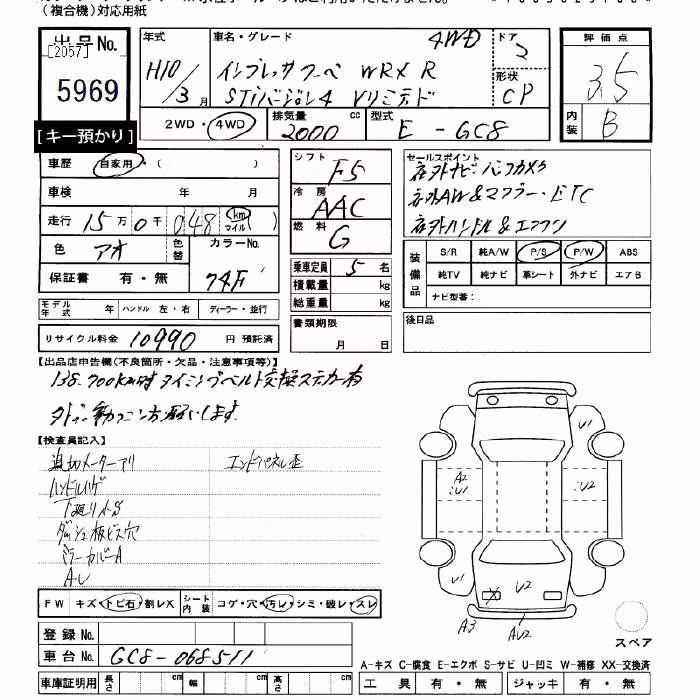 (複合機)対応用紙
出品No.
[2057]
5969
[キー預かり]
年式
H10/3月
車名・グレード
4WD
インプレッサクーペ WRX R
STiバージョン4 Vリミテッド
ドア
2
形状
CP
2WD・4WD
排気量
2000 cc
型式
E-GC8
評価点
3.5
内装
B
車歴 自家用・( )
車検 年 月
走行 15万0千048(km マイル)
色 アオ
色替
カラーNo.
74F
保証書 有・無
シフト F5
冷房 AAC
燃料 G
乗車定員 5名
積載量 kg
総重量 kg
書類期限
月 日
セールスポイント
社外ナビ・バックカメラ
社外AW&マフラー・ETC
社外ハンドル&エアクリ
装備品
S/R 純A/W P/S P/W ABS
純TV 純ナビ 革シート 外ナビ エアB
ナビ型番:
後日品
モデル年式 年 ハンドル 左・右 ディーラー・並行
リサイクル料金 10990 円 預託済
【出品店申告欄(不良箇所・欠品・注意事項等)】
138,700km時タイミングベルト交換ステッカー有
【検査員記入】
追加メーターアリ
エンドパネル歪
ハンドルハゲ
下廻りサS
ダッシュ板ビス穴
ミラーカバーA
A・U
FW キズ・トビ石・割レX シート内装 コゲ・穴・汚レ・シミ・破レ・スレ
登録No.
車台No. GC8-068511
車庫証明用 長さ cm 幅 cm 高さ cm
U1
A2
U1
U2
U1
U2
U1
A3
AU2
スペア
A-キズ C-腐食 E-エクボ S-サビ U-凹ミ W-補修 XX-交換済
工具 有・無 ジャッキ 有・無